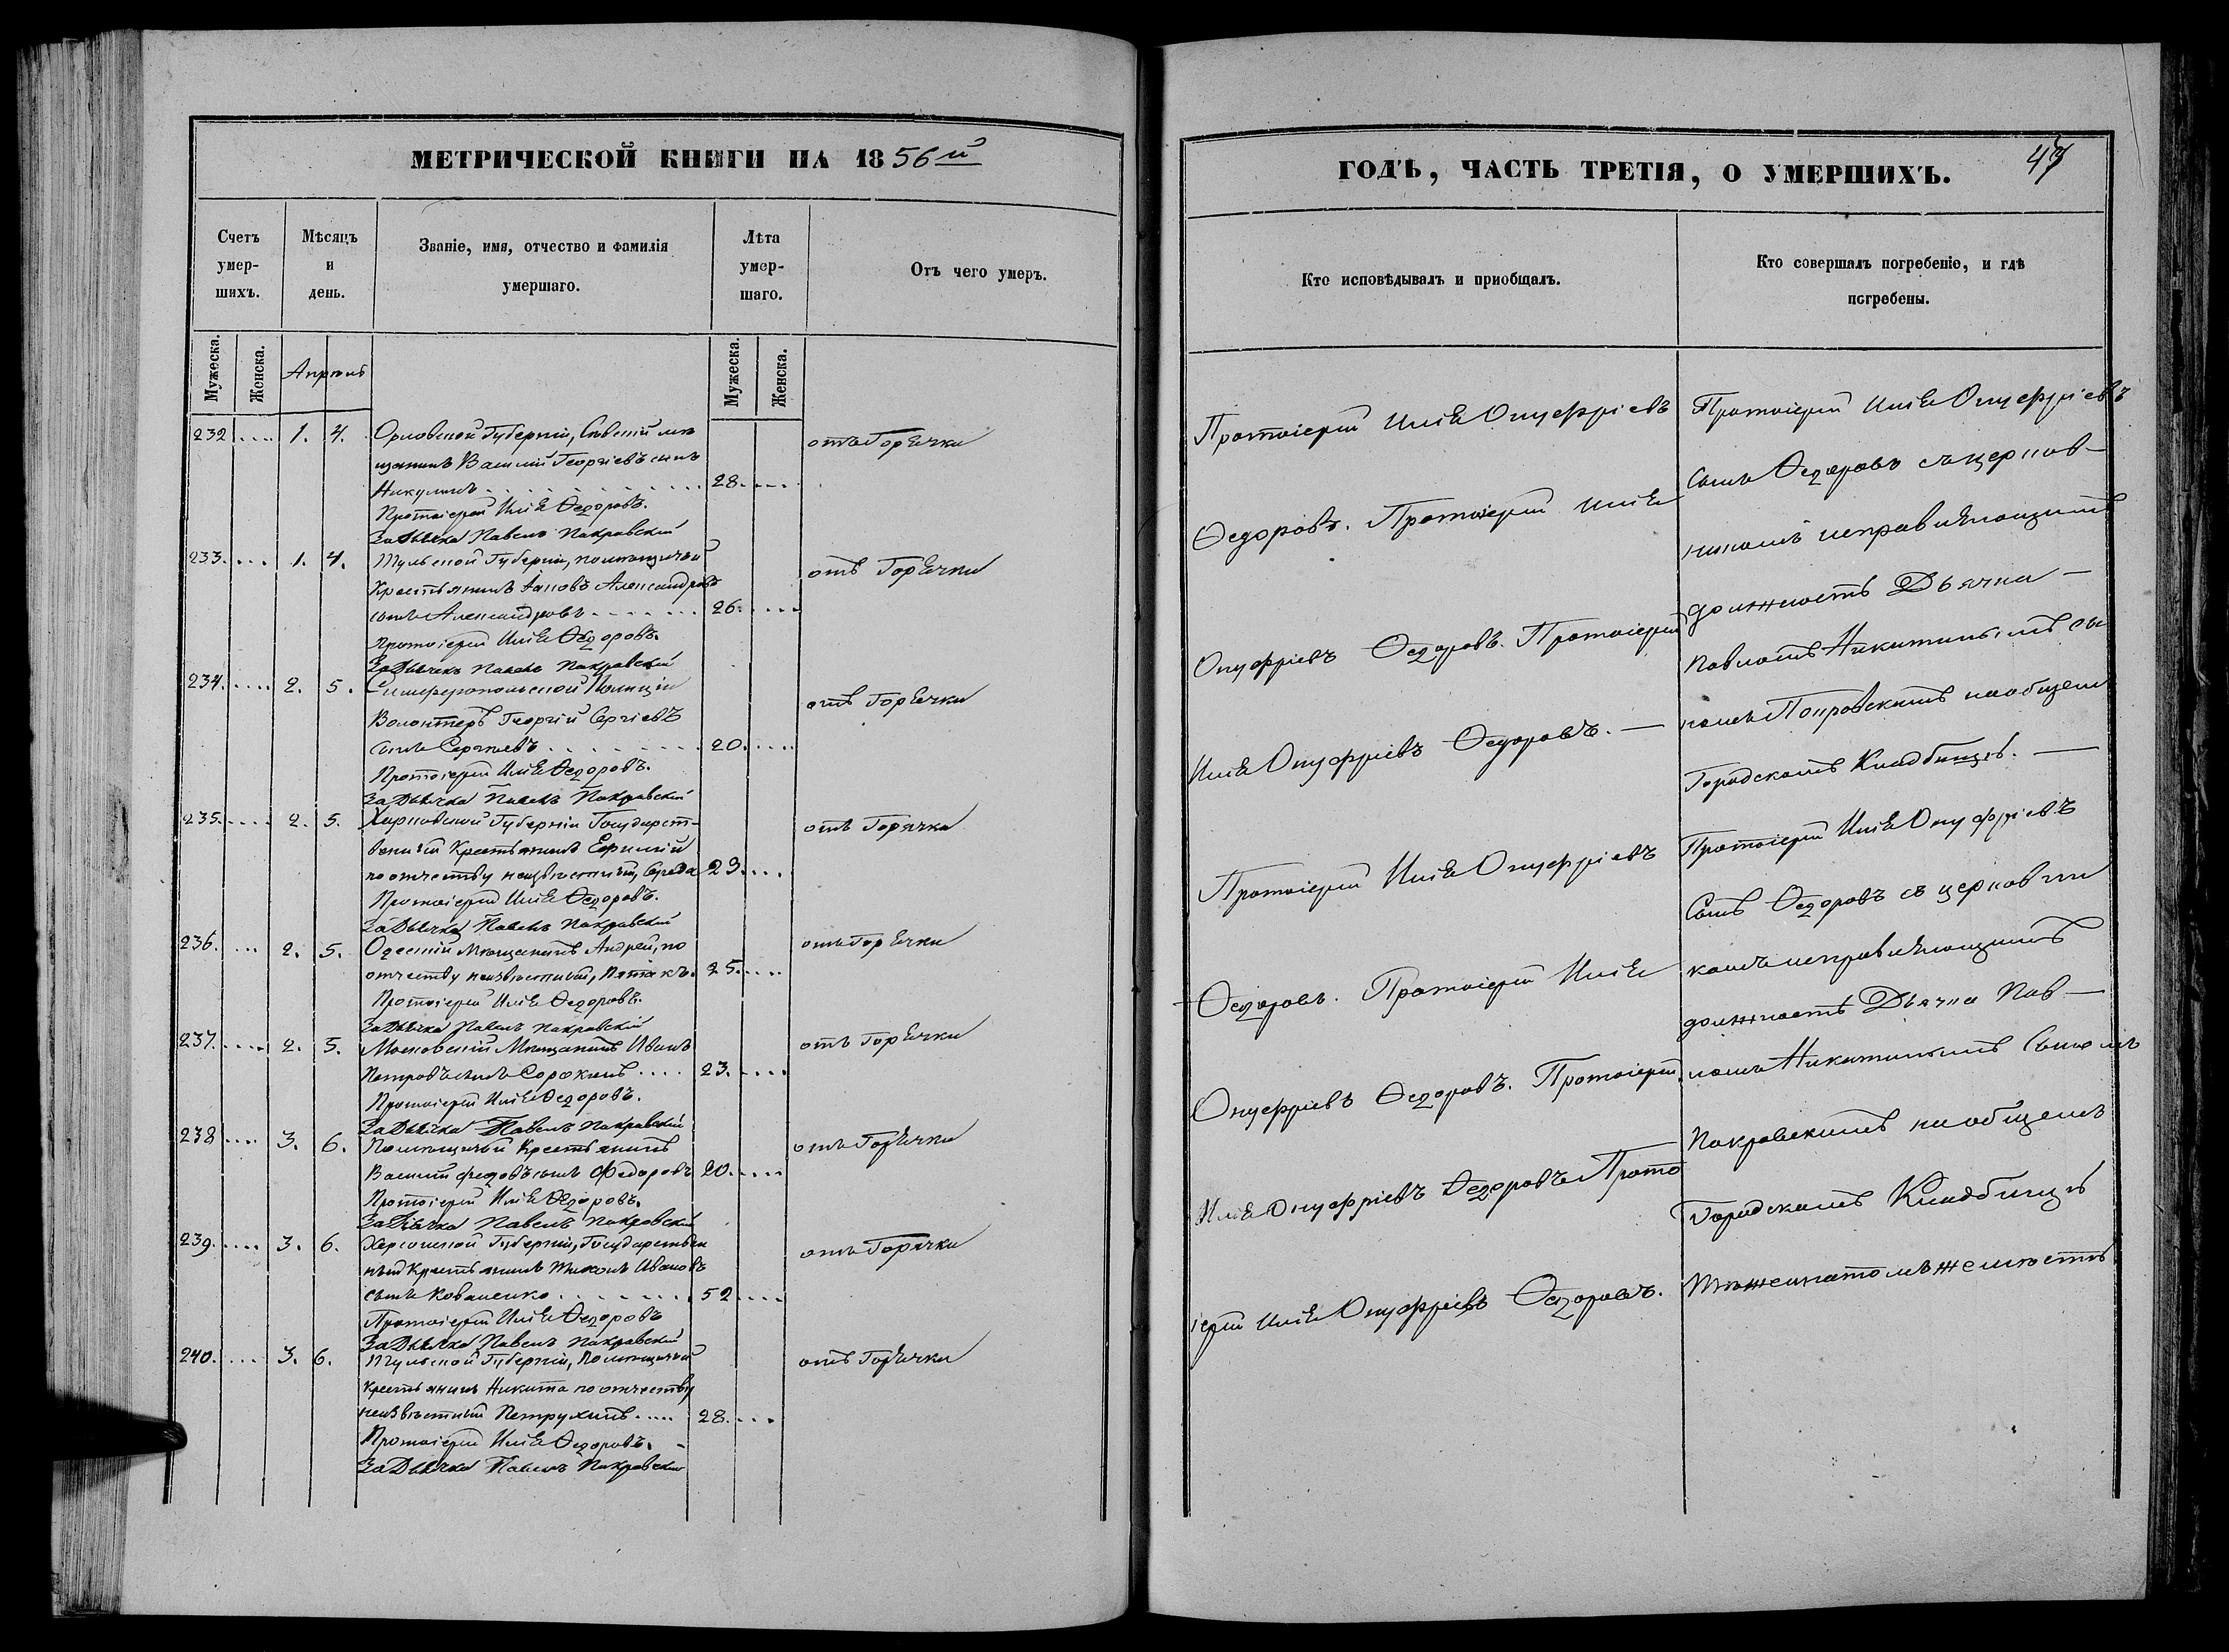 МЕТРИЧЕСКОЙ КНИГИ НА 1856й
Счетъ умер-шихъ.
Мѣсяцъ и день.
Званіе, имя, отчество и фамилія умершаго.
Лѣта умер-шаго.
Отъ чего умеръ.
Мужеска.
Женска.
Апрѣль
Мужеска.
Женска.
232 .... 1. 4. Орловской Губерніи, Сѣвскій мѣ отъ Горячки
щанинъ Василій Георгіевъ сынъ
Никулинъ 28.
Протоіерей Илія Ѳедоровъ.
За Дьячка Павелъ Покровскій
233. ... 1. 4. Тульской Губерніи, помѣщичій отъ Горячки
Крестьянинъ Іаковъ Александровъ
сынъ Александровъ 26.
Протоіерей Илія Ѳедоровъ.
За Дьячка Павелъ Покровскій
234. .... 2. 5. Симферопольской Полиціи отъ Горячки
Волонтеръ Георгій Сергіевъ
сынъ Сергіевъ 20.
Протоіерей Илія Ѳедоровъ.
За Дьячка Павелъ Покровскій
235. .... 2. 5. Харьковской Губерніи Государст- отъ Горячки
венный Крестьянинъ Ефимій
по отчеству неизвѣстный, Середа 23.
Протоіерей Илія Ѳедоровъ.
За Дьячка Павелъ Покровскій
236. ... 2. 5. Одесскій Мѣщанинъ Андрей, по отъ Горячки
отчеству неизвѣстный, Пятакъ. 25.
Протоіерей Илія Ѳедоровъ.
За Дьячка Павелъ Покровскій
237. .... 2. 5. Московскій Мѣщанинъ Иванъ отъ Горячки
Петровъ сынъ Сорокинъ .... 23.
Протоіерей Илія Ѳедоровъ.
За Дьячка Павелъ Покровскій
238 .... 3. 6. Помѣщичій Крестьянинъ отъ Горячки
Василій Федовъ сынъ Федоровъ 20.
Протоіерей Илія Ѳедоровъ.
За Дьячка Павелъ Покровскій
239. .... 3. 6. Херсонской Губерніи, Государствен отъ Горячки
ный Крестьянинъ Тихонъ Ивановъ
сынъ Коваленко 52
Протоіерей Илія Ѳедоровъ
За Дьячка Павелъ Покровскій
240. .... 3. 6. Тульской Губерніи, Помѣщичій отъ Горячки
крестьянинъ Никита по отчеству
неизвѣстный Петрухинъ ..... 28.
Протоіерей Илія Ѳедоровъ.
За Дьячка Павелъ Покровскій
ГОДЪ, ЧАСТЬ ТРЕТІЯ, О УМЕРШИХЪ.
Кто исповѣдывалъ и пріобщалъ.
Кто совершалъ погребеніе, и гдѣ погребены.
Протоіерей Илія Онуфріевъ
Ѳедоровъ. Протоіерей Илія
Онуфріевъ Ѳедоровъ. Протоіерей
Илія Онуфріевъ Ѳедоровъ. —
Протоіерей Илія Онуфріевъ
Ѳедоровъ. Протоіерей Илія
Онуфріевъ Ѳедоровъ. Протоіерей
Илія Онуфріевъ Ѳедоровъ Прото
іерей Илія Онуфріевъ Ѳедоровъ.
Протоіерей Илія Онуфріевъ
Сынъ Ѳедоровъ съ церков-
никомъ исправляющимъ
должность Дьячка —
Павломъ Никитинымъ сы
номъ Покровскимъ на общемъ
Городскомъ Кладбищѣ. —
Протоіерей Илія Онуфріевъ
Сынъ Ѳедоровъ съ церковни
комъ исправляющимъ
должность Дьячка Пав—
ломъ Никитинымъ Сыномъ
Покровскимъ на общемъ
Городскомъ Кладбищѣ